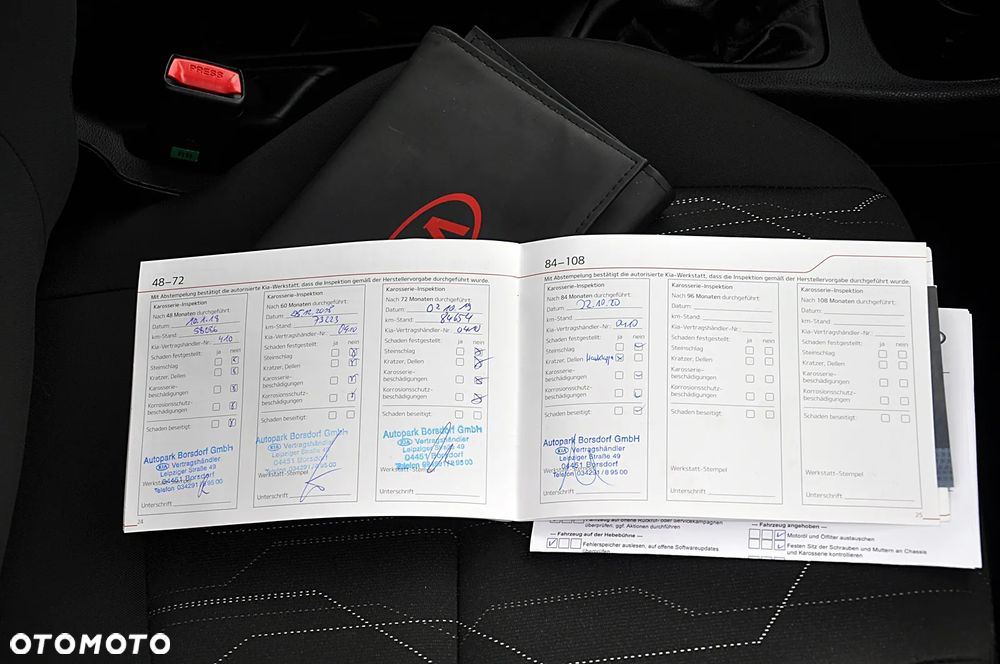 PRESS
48–72
Mit Abstempelung bestätigt die autorisierte Kia-Werkstatt, dass die Inspektion gemäß der Herstellervorgabe durchgeführt wurde.
Karosserie-Inspektion
Nach 48 Monaten durchgeführt:
Datum: 10.1.18
km-Stand:
Kia-Vertragshändler-Nr.: 410
Schaden festgestellt: ja nein
Steinschlag
Kratzer, Dellen
Karosserie-
beschädigungen
Korrosionsschutz-
beschädigungen
Schaden beseitigt:
Autopark Borsdorf GmbH
KIA Vertragshändler
Leipziger Straße 49
04451 Borsdorf
Telefon 034291 / 8 95 00
Unterschrift
24
Karosserie-Inspektion
Nach 60 Monaten durchgeführt:
Datum:
km-Stand: 73223
Kia-Vertragshändler-Nr.: 0410
Schaden festgestellt: ja nein
Steinschlag
Kratzer, Dellen
Karosserie-
beschädigungen
Korrosionsschutz-
beschädigungen
Schaden beseitigt:
Autopark Borsdorf GmbH
KIA Vertragshändler
Leipziger Straße 49
04451 Borsdorf
Telefon 034291 / 8 95 00
Unterschrift
Karosserie-Inspektion
Nach 72 Monaten durchgeführt:
Datum: 02.10.19
km-Stand: 84654
Kia-Vertragshändler-Nr.: 0410
Schaden festgestellt: ja nein
Steinschlag
Kratzer, Dellen
Karosserie-
beschädigungen
Korrosionsschutz-
beschädigungen
Schaden beseitigt:
Autopark Borsdorf GmbH
KIA Vertragshändler
Leipziger Straße 49
04451 Borsdorf
Unterschrift
84–108
Mit Abstempelung bestätigt die autorisierte Kia-Werkstatt, dass die Inspektion gemäß der Herstellervorgabe durchgeführt wurde.
Karosserie-Inspektion
Nach 84 Monaten durchgeführt:
Datum: 22.10.20
km-Stand:
Kia-Vertragshändler-Nr.: 0410
Schaden festgestellt: ja nein
Steinschlag
Kratzer, Dellen
Karosserie-
beschädigungen
Korrosionsschutz-
beschädigungen
Schaden beseitigt:
Autopark Borsdorf GmbH
KIA Vertragshändler
Leipziger Straße 49
04451 Borsdorf
Telefon 034291 / 8 95 00
Unterschrift
Karosserie-Inspektion
Nach 96 Monaten durchgeführt:
Datum:
km-Stand:
Kia-Vertragshändler-Nr.:
Schaden festgestellt: ja nein
Steinschlag
Kratzer, Dellen
Karosserie-
beschädigungen
Korrosionsschutz-
beschädigungen
Schaden beseitigt:
Werkstatt-Stempel
Unterschrift
Karosserie-Inspektion
Nach 108 Monaten durchgeführt:
Datum:
km-Stand:
Kia-Vertragshändler-Nr.:
Schaden festgestellt: ja nein
Steinschlag
Kratzer, Dellen
Karosserie-
beschädigungen
Korrosionsschutz-
beschädigungen
Schaden beseitigt:
Werkstatt-Stempel
Unterschrift
25
überprüfen, ggf. Aktionen durchführen
Fahrzeug auf der Hebebühne
Fehlerspeicher auslesen, auf offene Softwareupdates
überprüfen
Fahrzeug angehoben
Motoröl und Ölfilter austauschen
Festen Sitz der Schrauben und Muttern an Chassis
und Karosserie kontrollieren
OTOMOTO